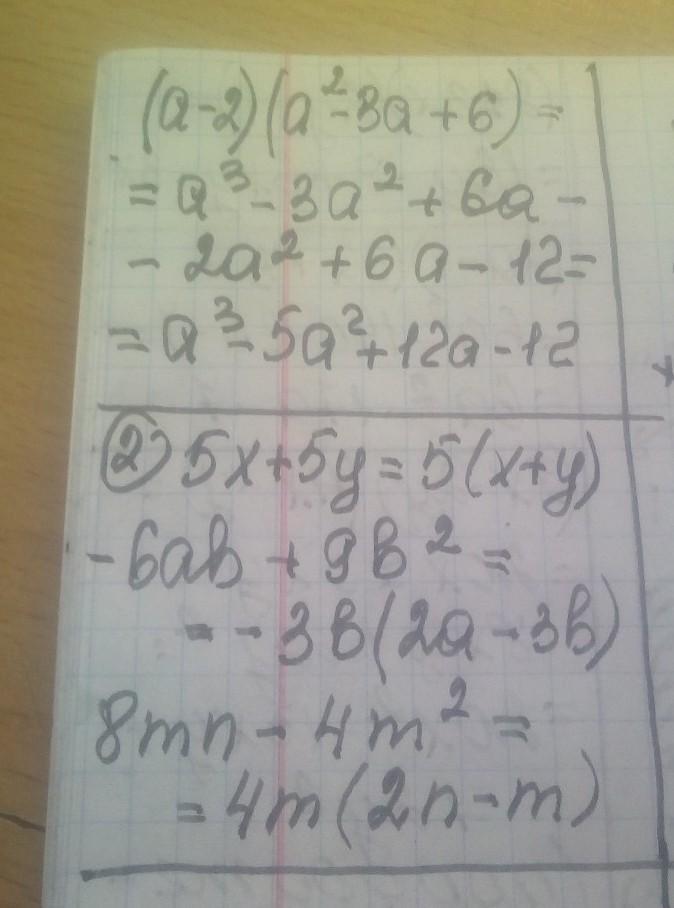 (a-2)(a²-3a+6)=
=a³-3a²+6a-
-2a²+6a-12=
=a³-5a²+12a-12
② 5x+5y=5(x+y)
-6ab+9b²=
=-3b(2a-3b)
8mn-4m²=
=4m(2n-m)